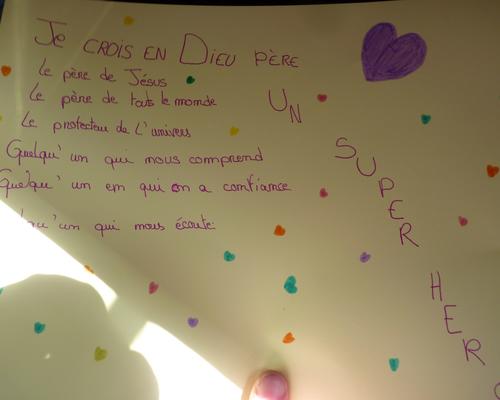 Je CROIS EN DIEU PÈRE
Le père de Jésus
Le père de touts le monde
Le protecteur de L'univers
Quelqu'un qui nous comprend
Quelqu'un em qui on a confiance
qu'un qui nous écoute.
UN
SUPER
HER